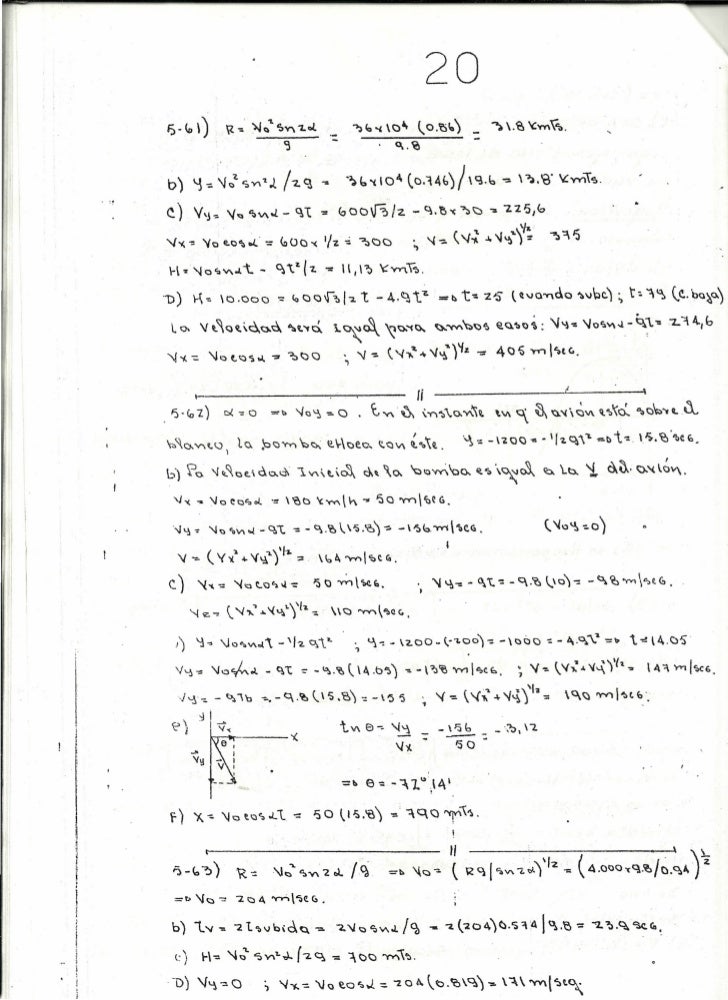 20
5-61) R = Vo² sn2α / g = 36x10⁴ (0.86) / 9.8 = 31.8 Kmts.
b) Y = Vo² sn²α / 2g = 36x10⁴ (0.746) / 19.6 = 13.8 Kmts.
C) Vy = Vo snα - gt = 600√3/2 - 9.8x30 = 225,6
Vx = Vo cosα = 600x 1/2 = 300 ; V = (Vx² + Vy²)^½ = 375
H = Vo snαt - gt²/2 = 11,13 Kmts.
D) H = 10.000 = 600√3/2 t - 4.9t² => t = 25 (cuando sube) ; t = 79 (c. baja)
La Velocidad será Igual para ambos casos: Vy = Vo snα - gt = 274,6
Vx = Vo cosα = 300 ; V = (Vx² + Vy²)^½ = 405 m/seg.
11
5-62) α=0 => Voy=0. En el instante en q' el avión está sobre el
blanco, la bomba choca con éste. Y = -1200 = -1/2gt² => t = 15.8 seg.
b) La Velocidad Inicial de la bomba es igual a La V del avión.
Vx = Vo cosα = 180 Km/h = 50 m/seg.
Vy = Vo snα - gt = -9.8(15.8) = -156 m/seg. (Voy=0)
V = (Vx² + Vy²)^½ = 164 m/seg.
C) Vx = Vo cosα = 50 m/seg. ; Vy = -gt = -9.8(10) = -98 m/seg.
Ve = (Vx² + Vy²)^½ = 110 m/seg.
) Y = Vo snαt - 1/2 gt² ; Y = -1200-(-200) = -1000 = -4.9t² => t = 14.05
Vy = Vo snα - gt = -9.8(14.05) = -138 m/seg. ; V = (Vx² + Vy²)^½ = 147 m/seg.
Vy = -gtb = -9.8(15.8) = -155 ; V = (Vx² + Vy²)^½ = 190 m/seg.
e) y Vx x θ Vy V tn θ = Vy / Vx = -156 / 50 = -3,12
=> θ = -72°14'
F) X = Vo cosαt = 50(15.8) = 790 mts.
11
5-63) R = Vo² sn2α /g => Vo = (Rg/sn2α)^1/2 = (4.000x9.8/0.94)^½
=> Vo = 204 m/seg.
b) tv = 2tsubida = 2Vo snα/g = 2(204)0.574/9.8 = 23.9 seg.
c) H = Vo² sn²α/2g = 700 mts.
D) Vy=0 ; Vx = Vo cosα = 204(0.819) = 171 m/seg.